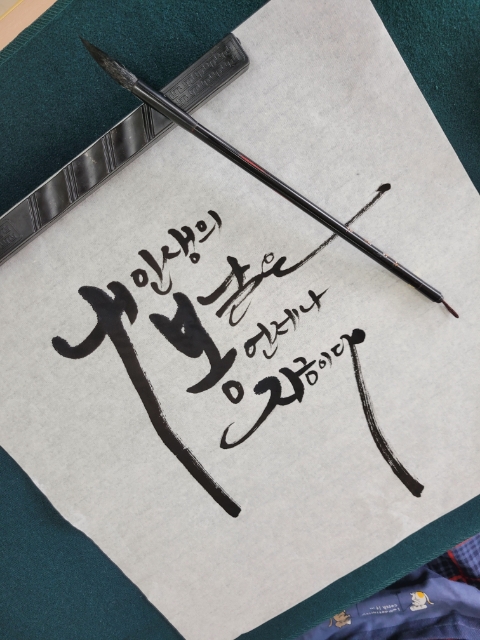 내 인생의
봄날은
언제나
지금이다